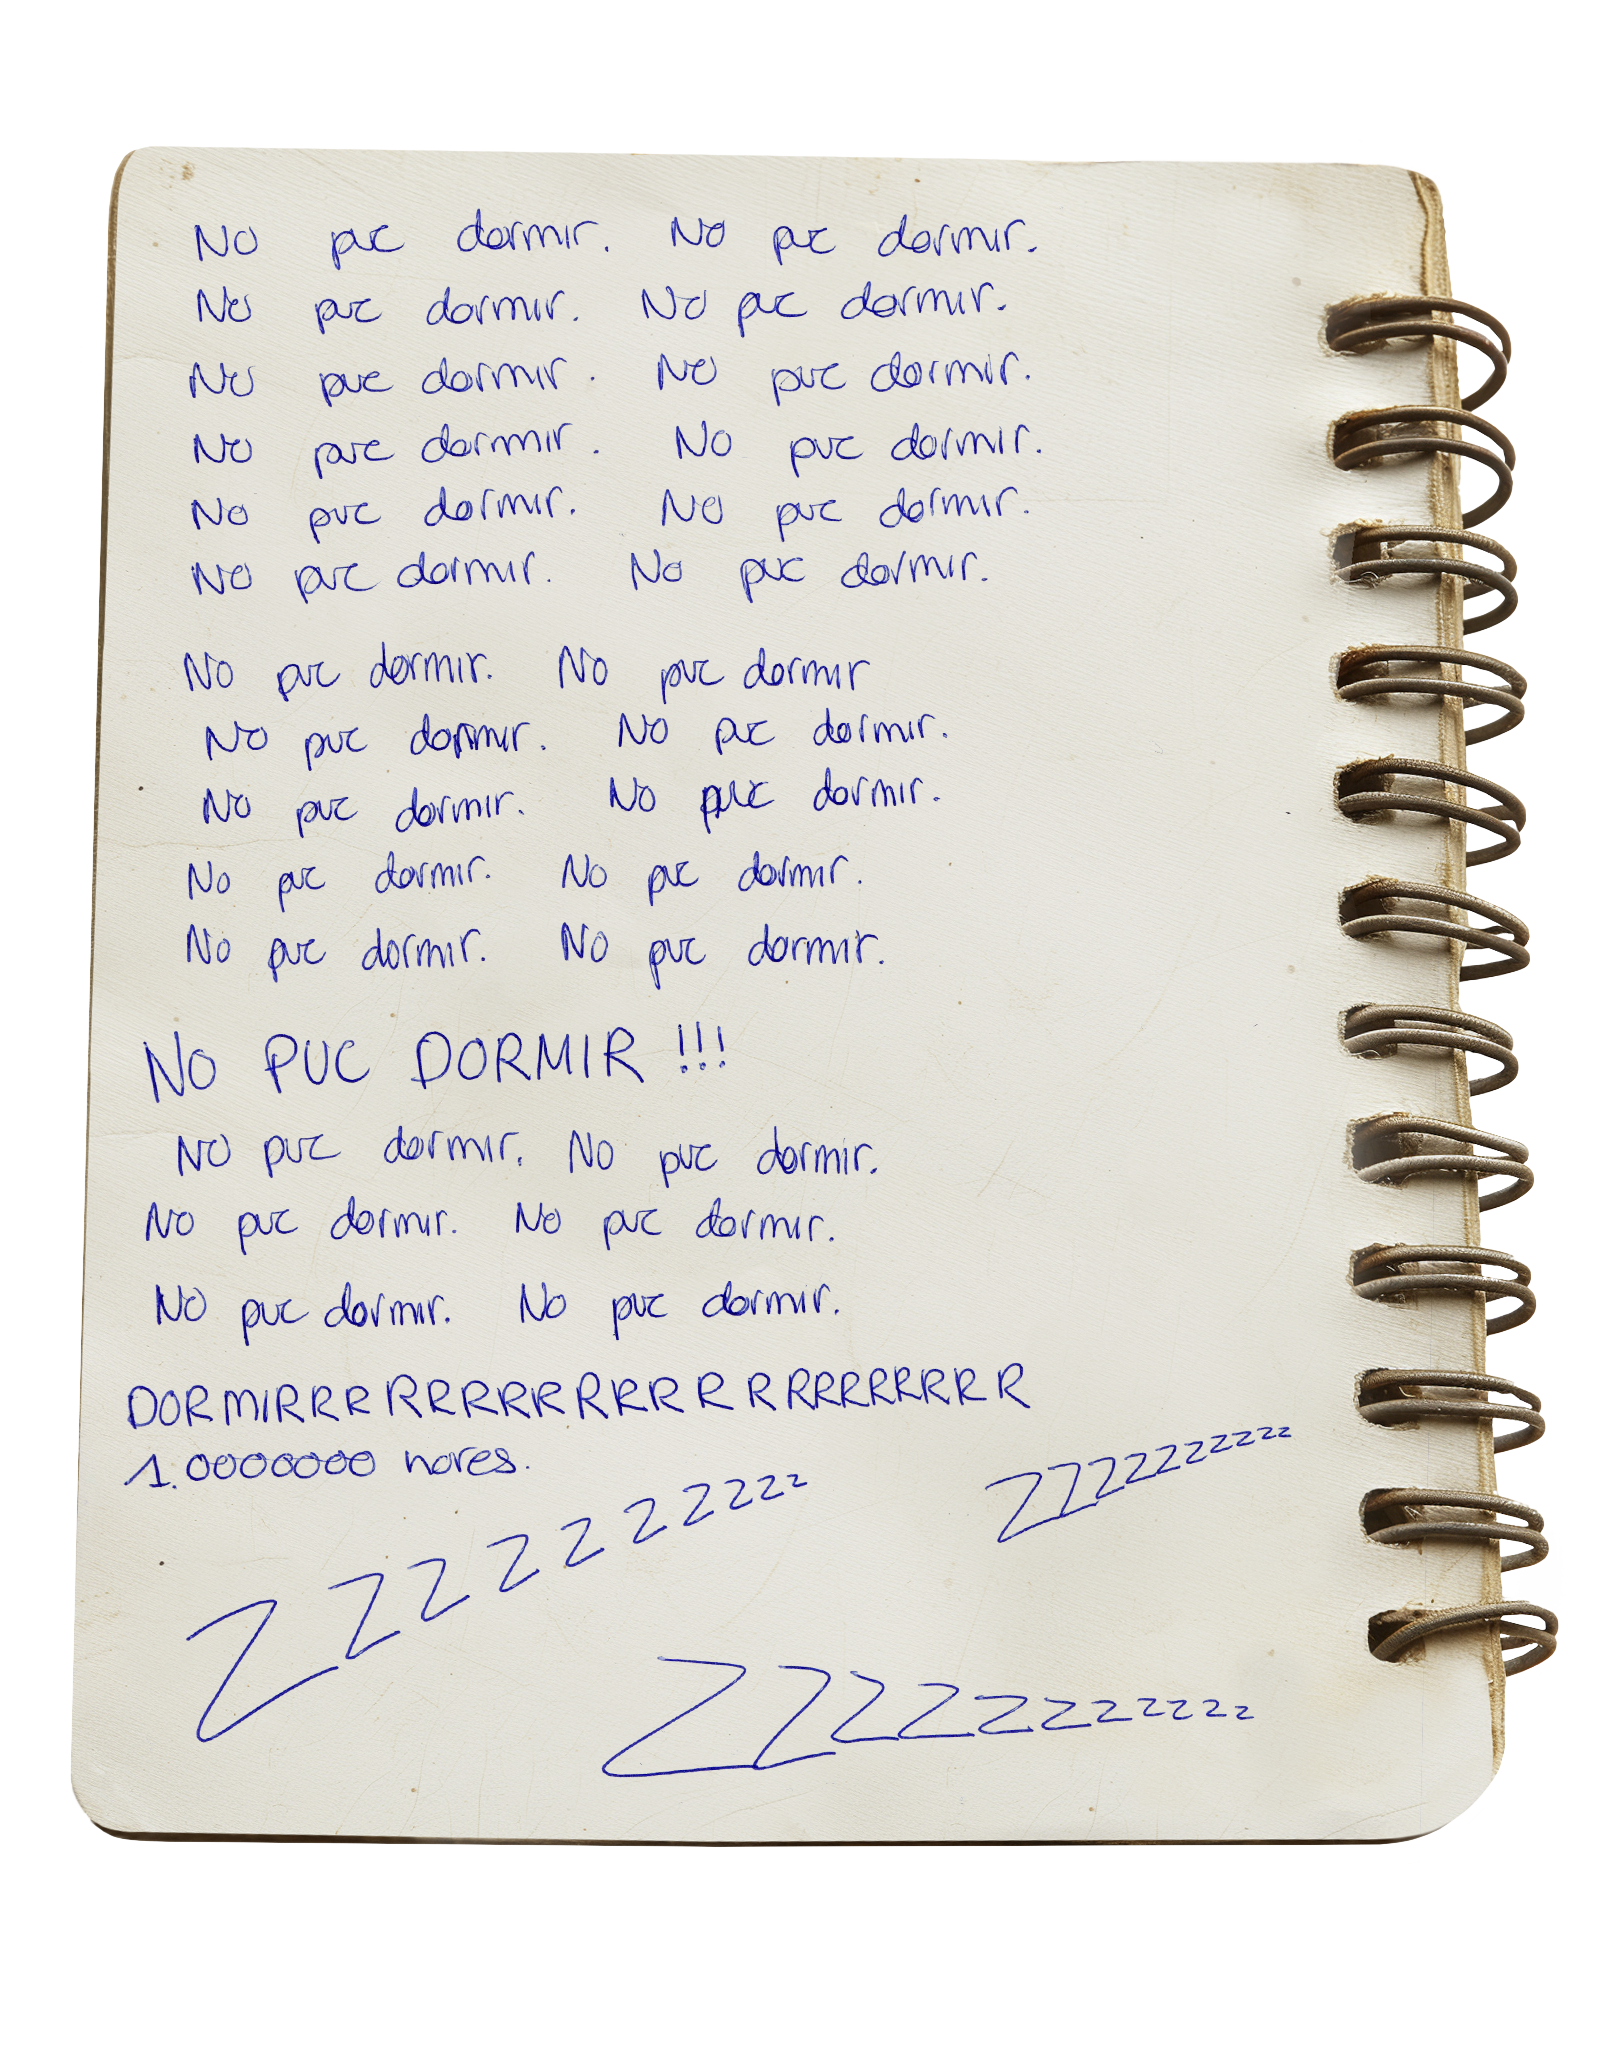 No puc dormir. No puc dormir.
No puc dormir. No puc dormir.
No puc dormir. No puc dormir.
No puc dormir. No puc dormir.
No puc dormir. No puc dormir.
No puc dormir. No puc dormir.
No puc dormir. No puc dormir
No puc dormir. No puc dormir.
No puc dormir. No puc dormir.
No puc dormir. No puc dormir.
No puc dormir. No puc dormir.
NO PUC DORMIR !!!
No puc dormir. No puc dormir.
No puc dormir. No puc dormir.
No puc dormir. No puc dormir.
DORMIRRRRRRRRRRRRRRRRRRRRRR
1.0000000 hores.
ZZZZZZZZZZZ
ZZZZZZZZZZZ
ZZZZZZZZZZZ